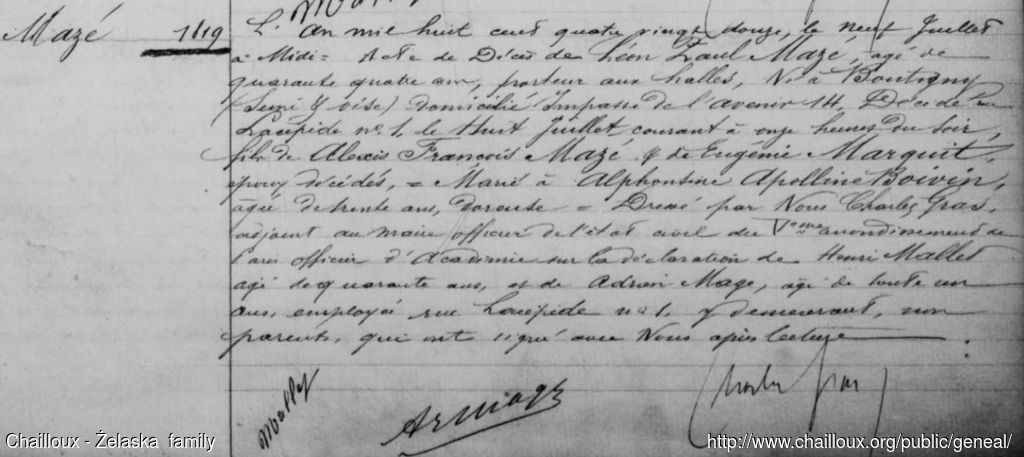 Mazé 1819
L'an mil huit cent quatre vingt douze, le neuf Juillet
à Midi = Acte de Décès de Léon Paul Mazé, agé de
quarante quatre ans, porteur aux halles, Né à Boutigny
(Seine & Oise) domicilié Impasse de l'avenir 14, Décédé rue
Lacépède no. 1, le huit Juillet courant à onze heures du soir,
fils de Alexis François Mazé & de Eugénie Marquit,
époux décédés, = Marié à Alphonsine Apolline Boivin,
agée de trente ans, doreuse = Dressé par Nous Charles Gras,
adjoint au maire officier de l'état civil du Vème arrondissement de
Paris officier d'Académie sur la déclaration de Henri Mallet
agé de quarante ans, et de Adrien Mage, agé de trente un
ans, employés rue Lacépède no 1, y demeurant, non
parents, qui ont signé avec Nous après lecture
Mallet
Ar Mage
Charles Gras
Chailloux - Żelaska family
http://www.chailloux.org/public/geneal/